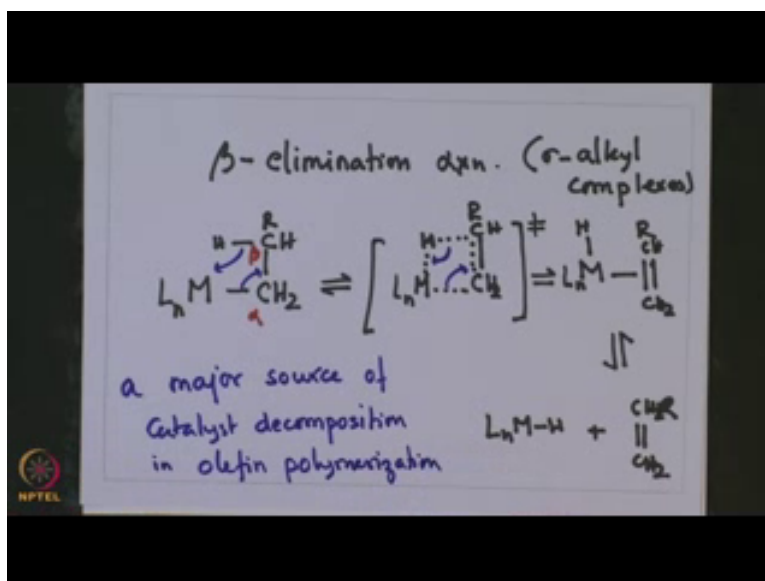 β- elimination αxn. (σ-alkyl
complexes)
R
H - CH
β
LnM - CH2
α
⇌
R
H CH
LnM CH2
‡
⇌
H R
CH
LnM - ||
CH2
⇌
LnM-H + CH2R
||
CH2
a major source of
Catalyst decomposition
in olefin polymerization
NPTEL